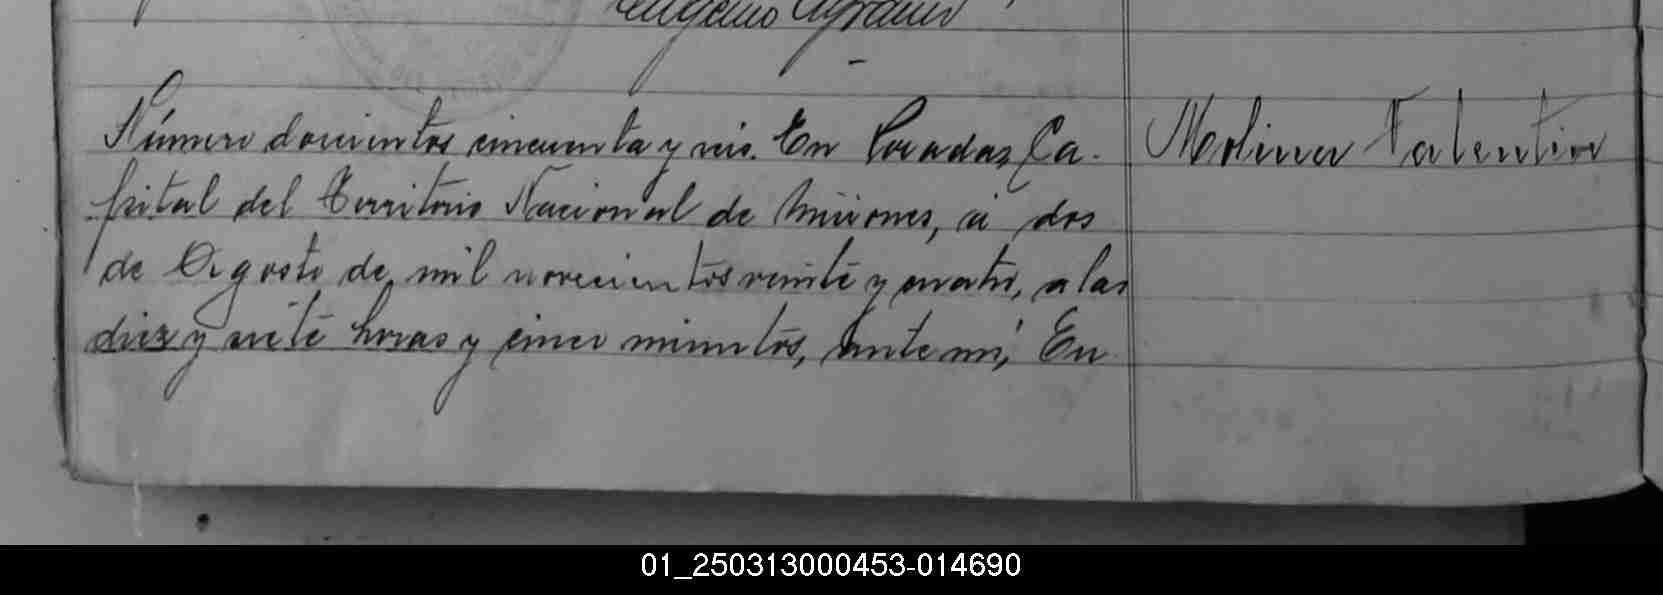 Eugenio
Número docientos cincuenta y seis. En Posadas, Ca-
pital del Territorio Nacional de Misiones, a dos
de Agosto de mil novecientos veinte y cuatro, a las
diez y siete horas y cinco minutos, ante mi, Eu
Molina Valentin
01_250313000453-014690